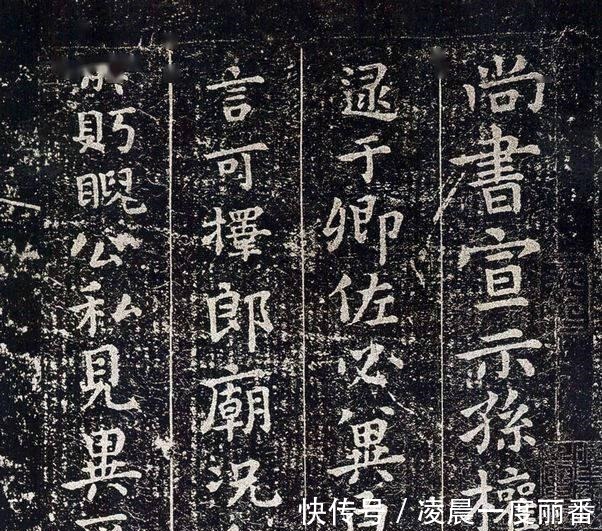 尚書宣示孫權
逮于卿佐必冀
言可擇郎廟況
盱睨公私見異
快传号／凌晨一度丽番